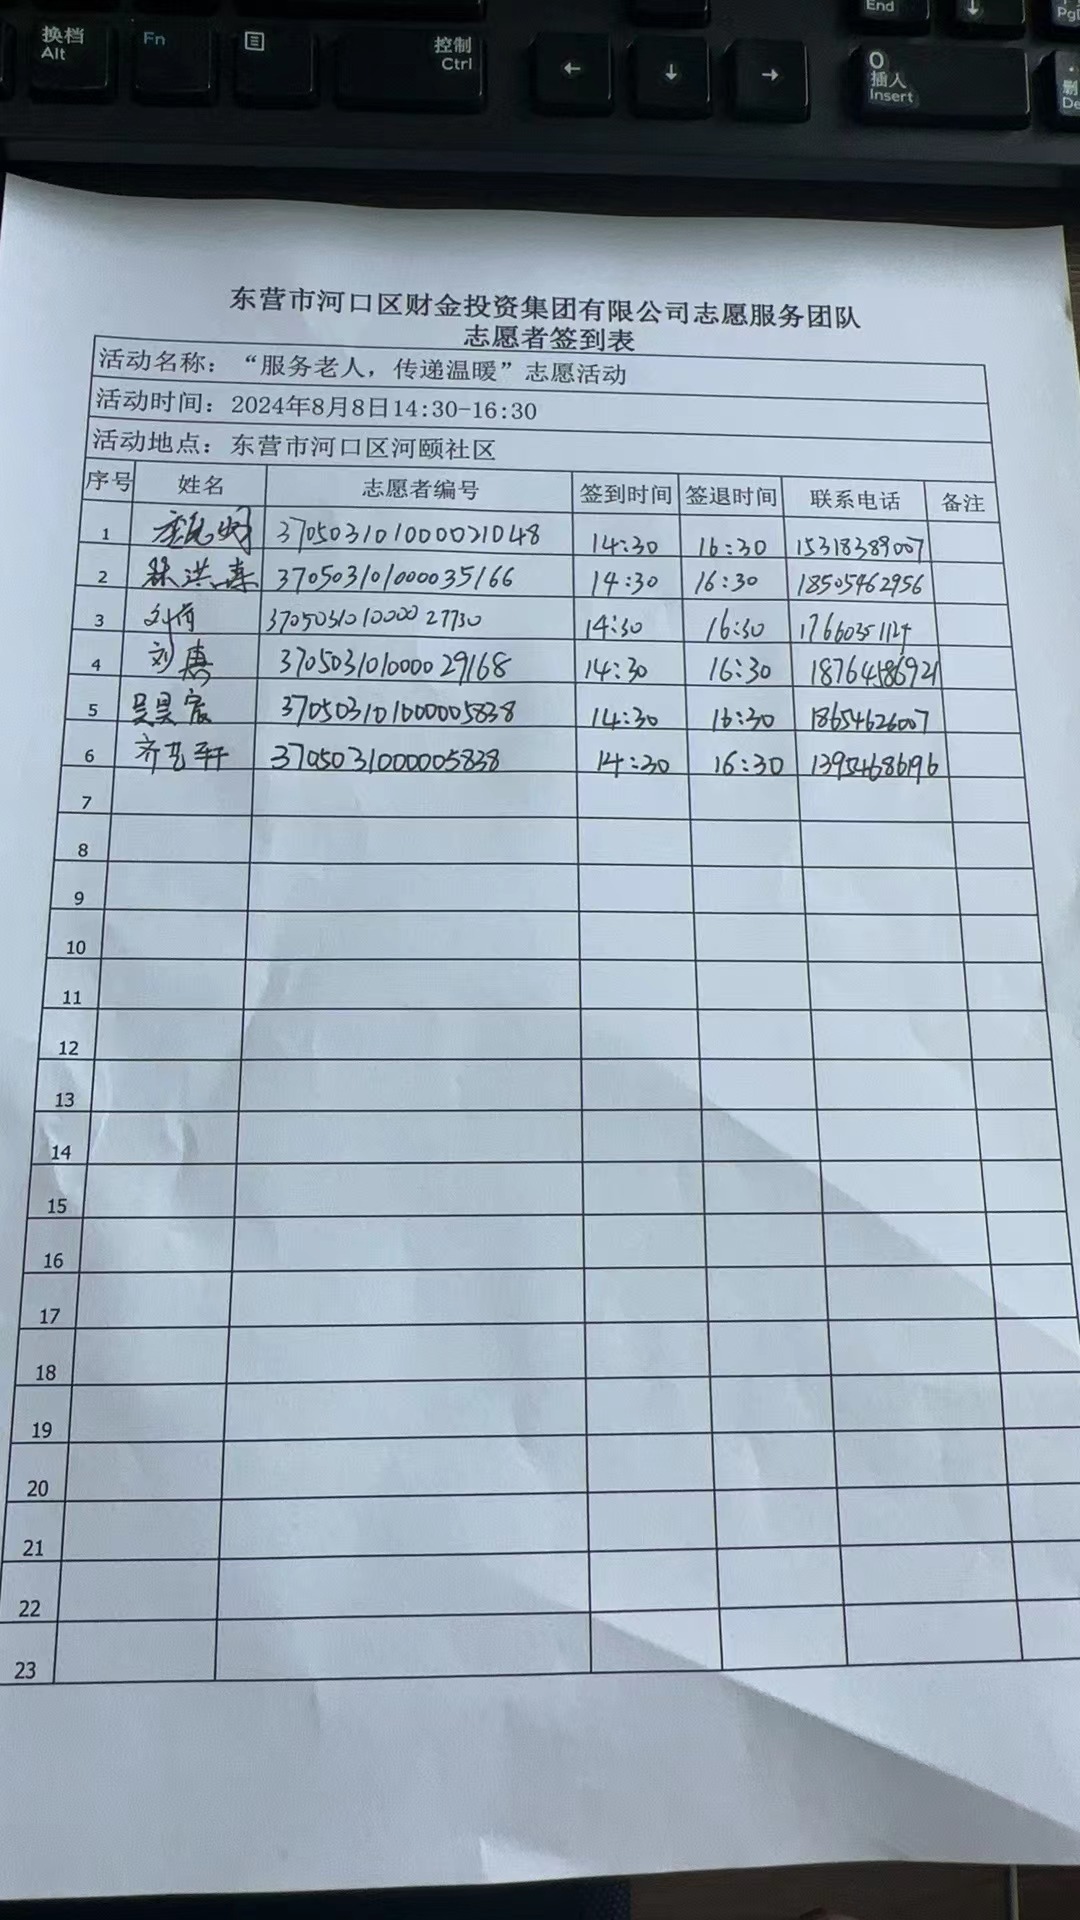 换档
Alt
Fn
控制
Ctrl
←
↓
→
End
↓
0
插入
Insert
东营市河口区财金投资集团有限公司志愿服务团队
志愿者签到表
活动名称：“服务老人，传递温暖”志愿活动
活动时间：2024年8月8日14:30-16:30
活动地点：东营市河口区河颐社区
序号 姓名 志愿者编号 签到时间 签退时间 联系电话 备注
1 370503101000021048 14:30 16:30 15318389007
2 林洪森 370503101000035166 14:30 16:30 18505462956
3 370503101000027730 14:30 16:30 17660351124
4 刘惠 370503101000029168 14:30 16:30 18764586921
5 吴昊宸 370503101000005838 14:30 16:30 18654626007
6 齐艺轩 3705031000005838 14:30 16:30 13954686196
7
8
9
10
11
12
13
14
15
16
17
18
19
20
21
22
23